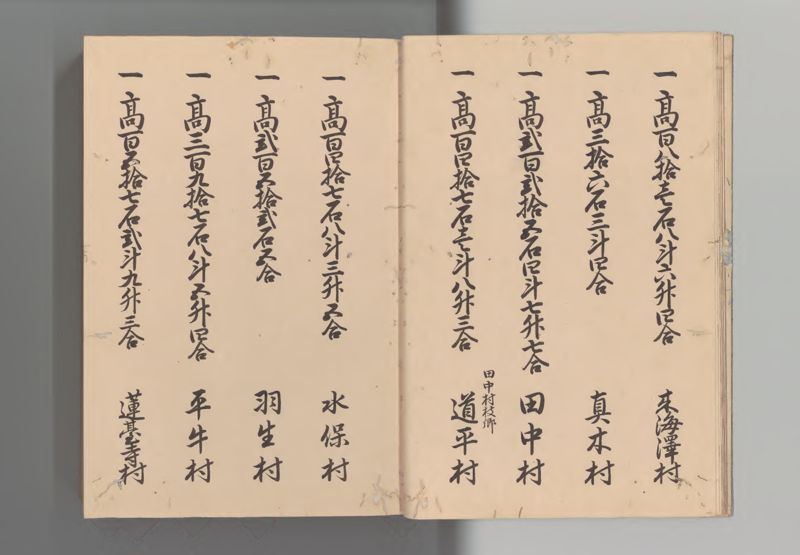 一 高百八拾壱石八斗六升四合 来海澤村
一 高三拾六石三斗四合 真木村
一 高弐百弐拾五石四斗七升七合 田中村
田中村枝郷
一 高百四拾七石壱斗八升三合 道平村
一 高百四拾七石八斗三升五合 水保村
一 高弐百五拾弐石五合 羽生村
一 高三百九拾七石八斗五升四合 平牛村
一 高百五拾七石弐斗九升三合 蓮臺寺村